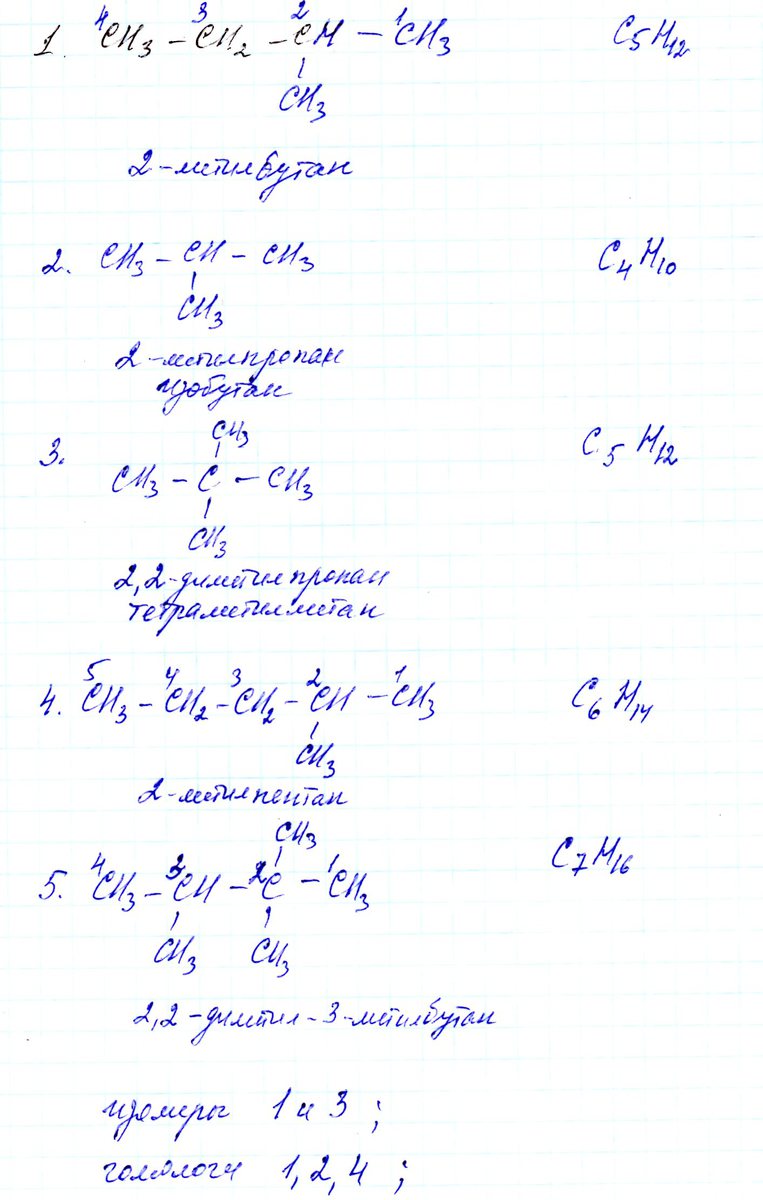 1. ⁴CH₃ – ³CH₂ – ²CH – ¹CH₃ C₅H₁₂
CH₃
2-метилбутан
2. CH₃ – CH – CH₃ C₄H₁₀
CH₃
2-метилпропан
изобутан
CH₃
3. CH₃ – C – CH₃ C₅H₁₂
CH₃
2,2-диметилпропан
тетраметилметан
4. ⁵CH₃ – ⁴CH₂ – ³CH₂ – ²CH – ¹CH₃ C₆H₁₄
CH₃
2-метилпентан
CH₃
5. ⁴CH₃ – ³CH – ²C – ¹CH₃ C₇H₁₆
CH₃ CH₃
2,2-диметил-3-метилбутан
изомеры 1 и 3 ;
гомологи 1, 2, 4 ;